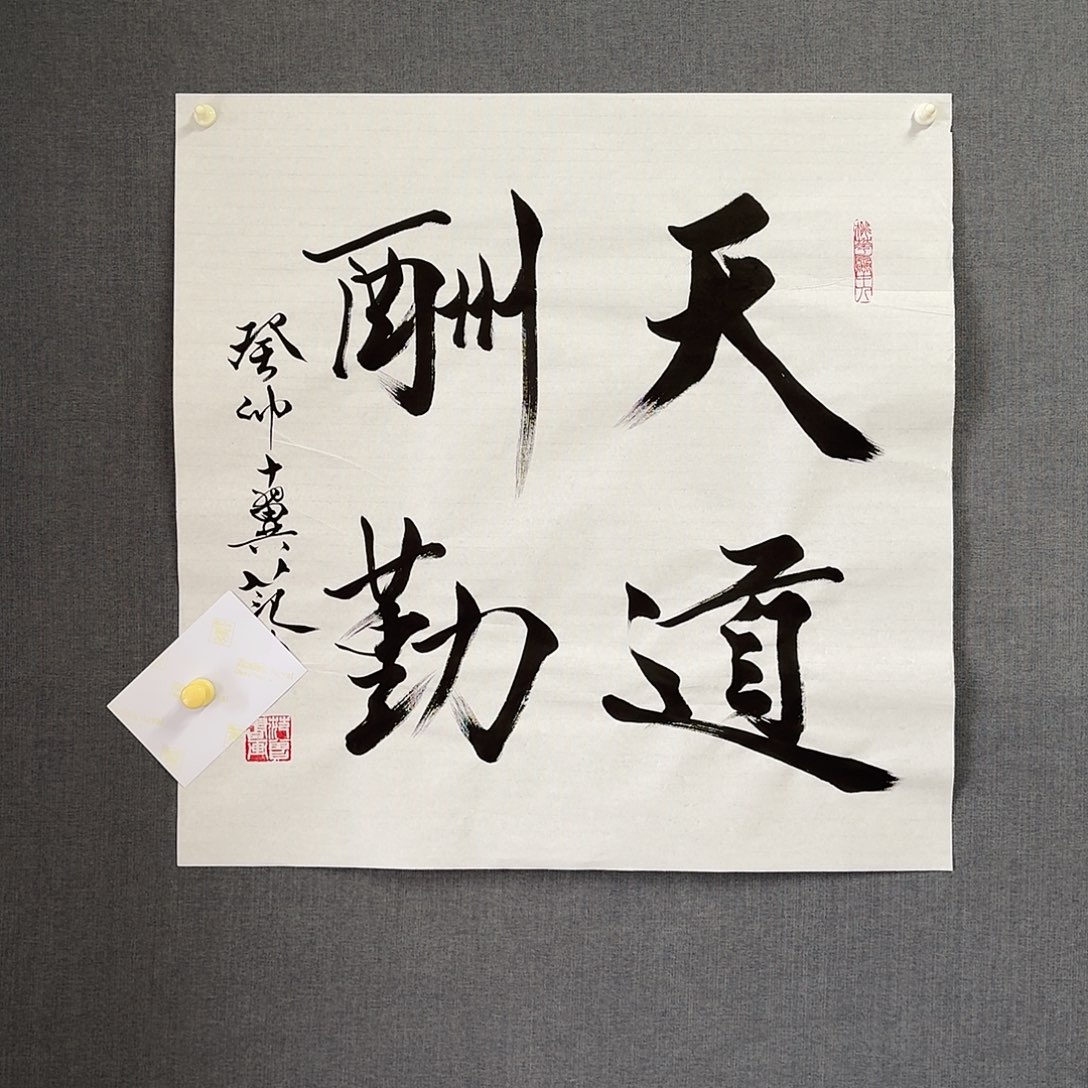 天道
酬勤
癸卯十翼范